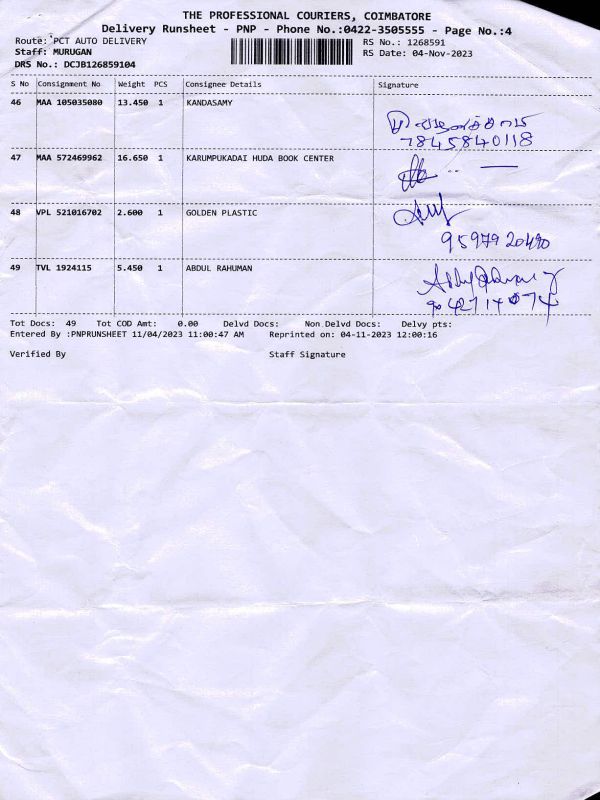 THE PROFESSIONAL COURIERS, COIMBATORE
Delivery Runsheet - PNP - Phone No.:0422-3505555 - Page No.:4
Route: PCT AUTO DELIVERY RS No.: 1268591
Staff: MURUGAN RS Date: 04-Nov-2023
DRS No.: DCJB126859104
S No Consignment No Weight PCS Consignee Details Signature
46 MAA 105035080 13.450 1 KANDASAMY
7845840118
47 MAA 572469962 16.650 1 KARUMPUKADAI HUDA BOOK CENTER
48 VPL 521016702 2.600 1 GOLDEN PLASTIC
9597920490
49 TVL 1924115 5.450 1 ABDUL RAHUMAN
9042714074
Tot Docs: 49 Tot COD Amt: 0.00 Delvd Docs: Non Delvd Docs: Delvy pts:
Entered By :PNPRUNSHEET 11/04/2023 11:00:47 AM Reprinted on: 04-11-2023 12:00:16
Verified By Staff Signature